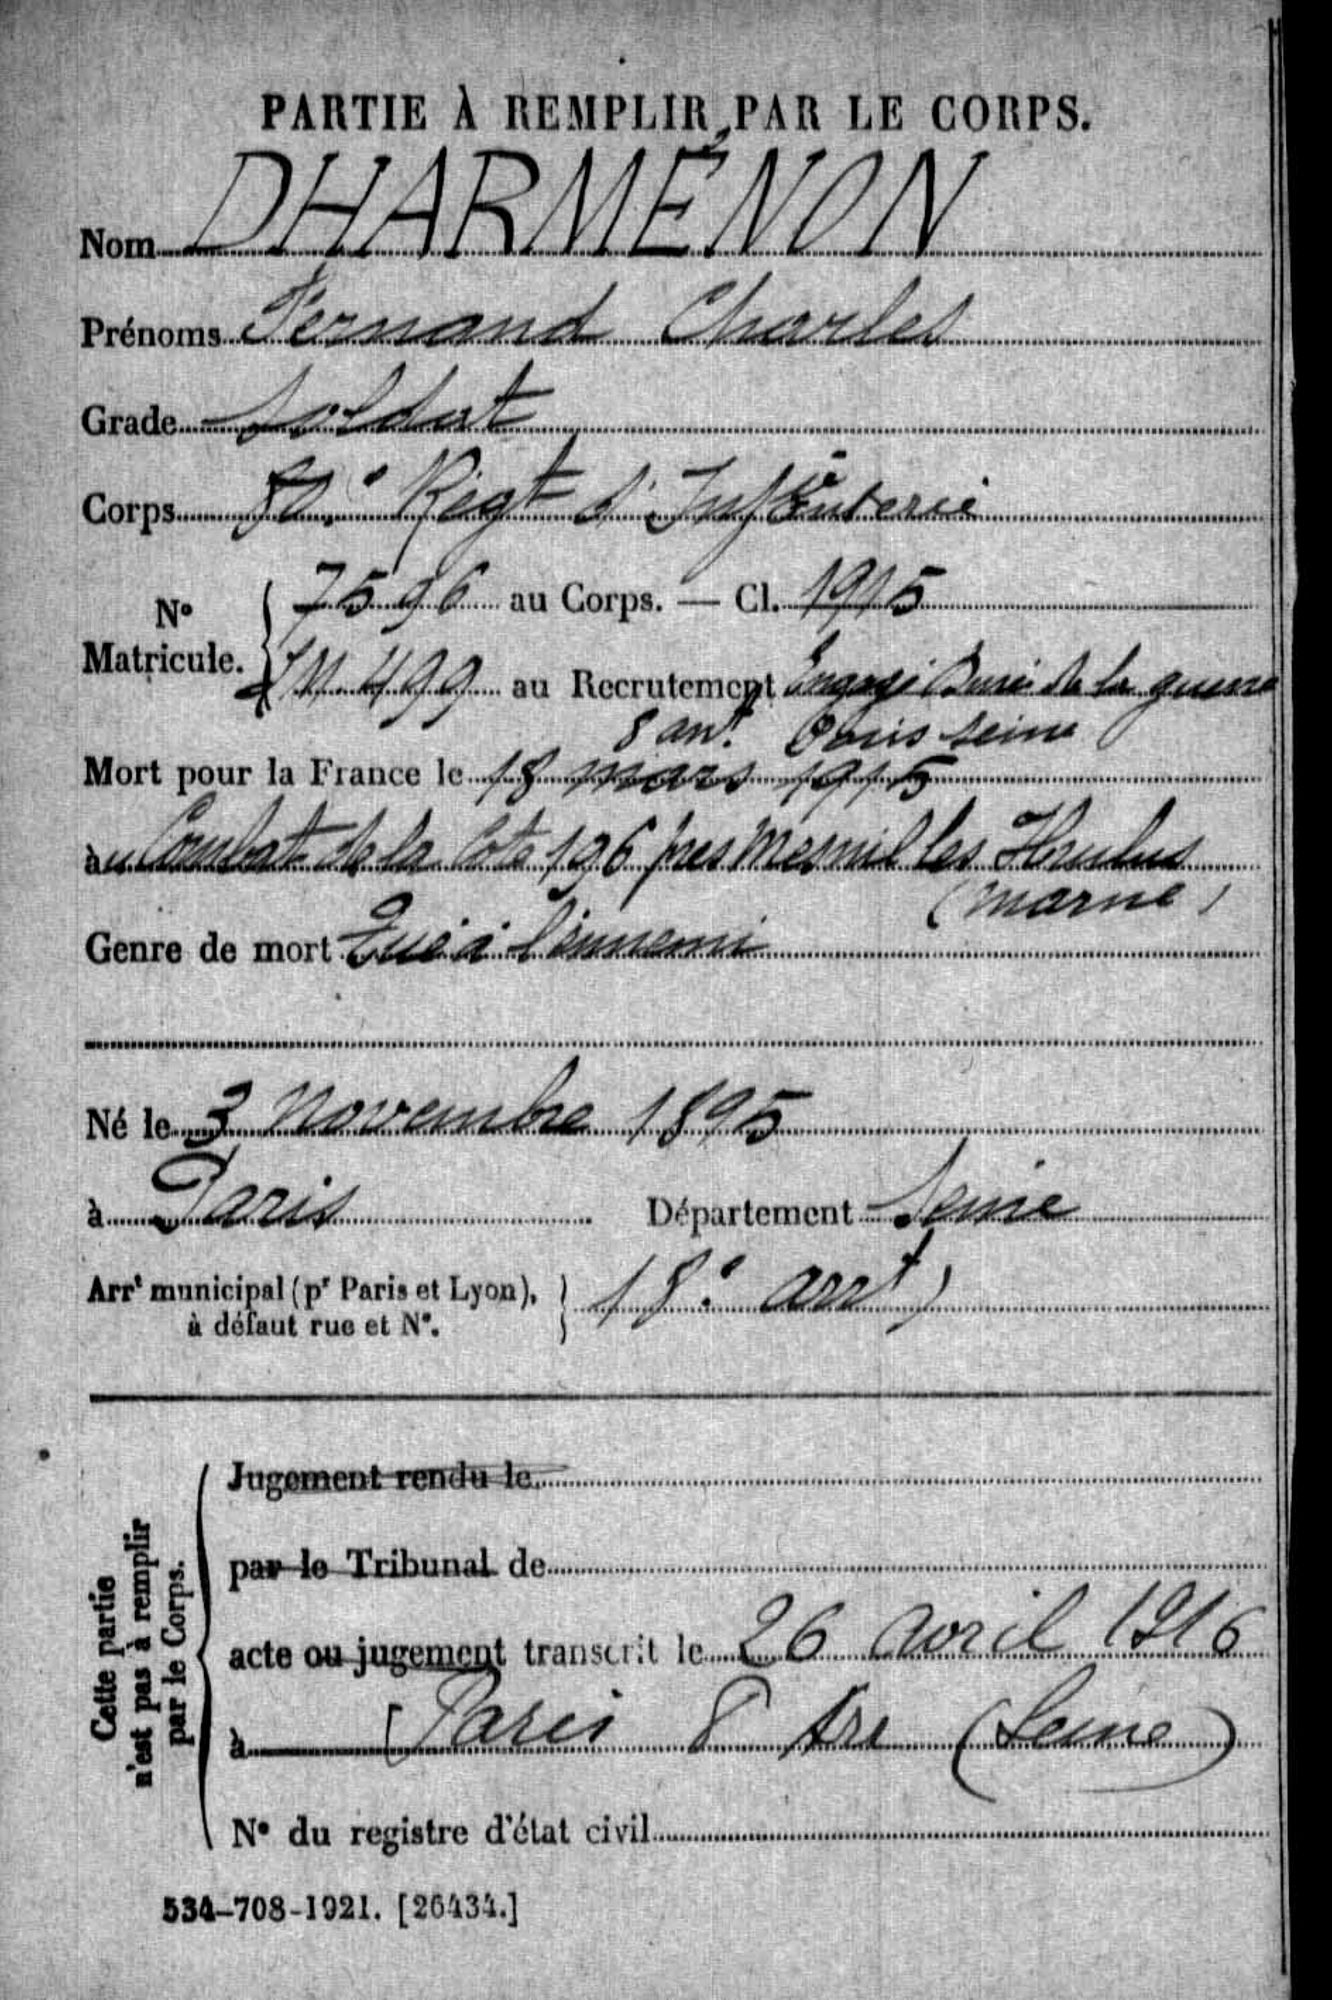 PARTIE À REMPLIR PAR LE CORPS.
Nom DHARMÉNON
Prénoms Fernand Charles
Grade Soldat
Corps Régt d'Infanterie
N° Matricule. 7596 au Corps. — Cl. 1915
499 au Recrutement Engagé Durée de la guerre
8 arrt. Paris Seine
Mort pour la France le 18 mars 1915
au Combat de la Cote 196 près Mesnil les Hurlus
(Marne)
Genre de mort Tué à l'ennemi
Né le 3 Novembre 1895
à Paris Département Seine
Arrt municipal (pr Paris et Lyon), à défaut rue et N°. 18e arrt)
Cette partie n'est pas à remplir par le Corps.
Jugement rendu le
par le Tribunal de
acte ou jugement transcrit le 26 avril 1916
à Paris 8 Are (Seine)
N° du registre d'état civil
534-708-1921. [26434.]